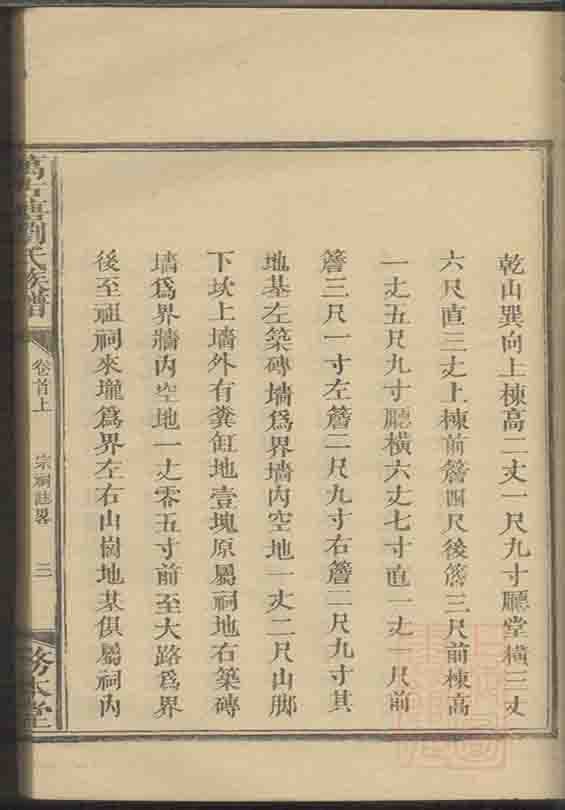 乾山巽向上棟高二丈一尺九寸廳堂橫三丈
六尺直三丈上棟前簷四尺後簷三尺前棟高
一丈五尺九寸廳橫六丈七寸直一丈一尺前
簷三尺一寸左簷二尺九寸右簷二尺九寸其
地基左築磚墻爲界墻內空地一丈二尺山脚
下坎上墻外有糞缸地壹塊原屬祠地右築磚
墻爲界牆內空地一丈零五寸前至大路爲界
後至祖祠來壠爲界左右山樹地基俱屬祠內
萬古塘劉氏族譜
卷首上
宗祠誌畧
三
務本堂